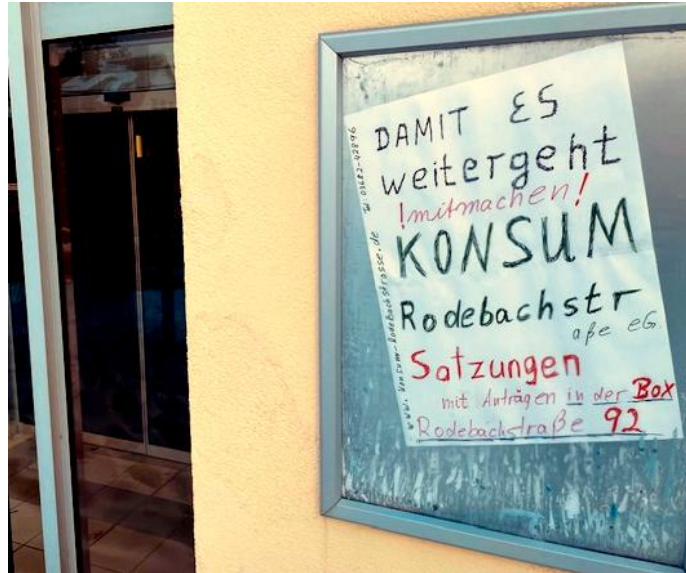 DAMIT ES
weitergeht
!mitmachen!
KONSUM
Rodebachstr
aße eG
Satzungen
mit Anträgen in der Box
Rodebachstraße 92
www.konsum-rodebachstrasse.de Tel: 03682-42896